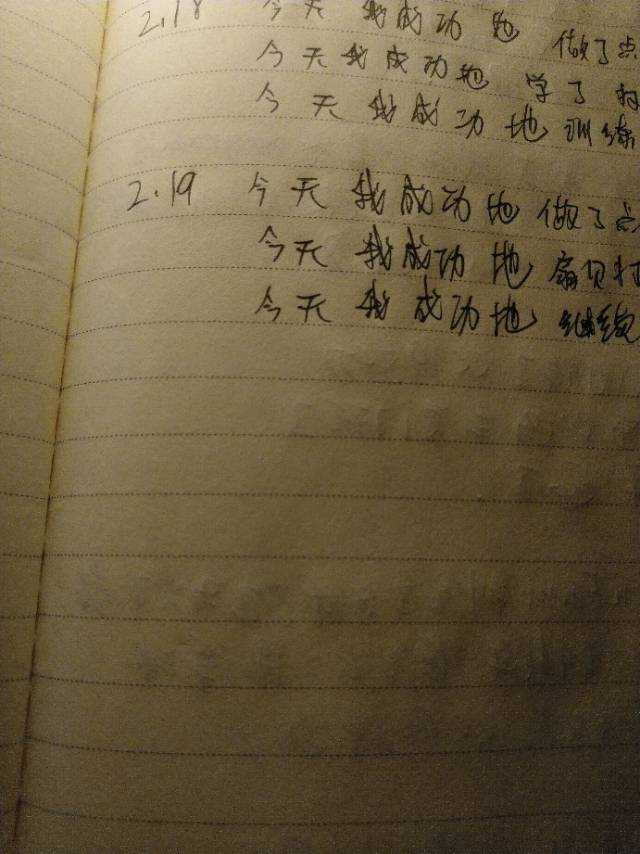 2.18 今天我成功地 做了点
今天我成功地 学了
今天我成功地训练
2.19 今天我成功地做了点
今天我成功地扇贝打
今天我成功地继续